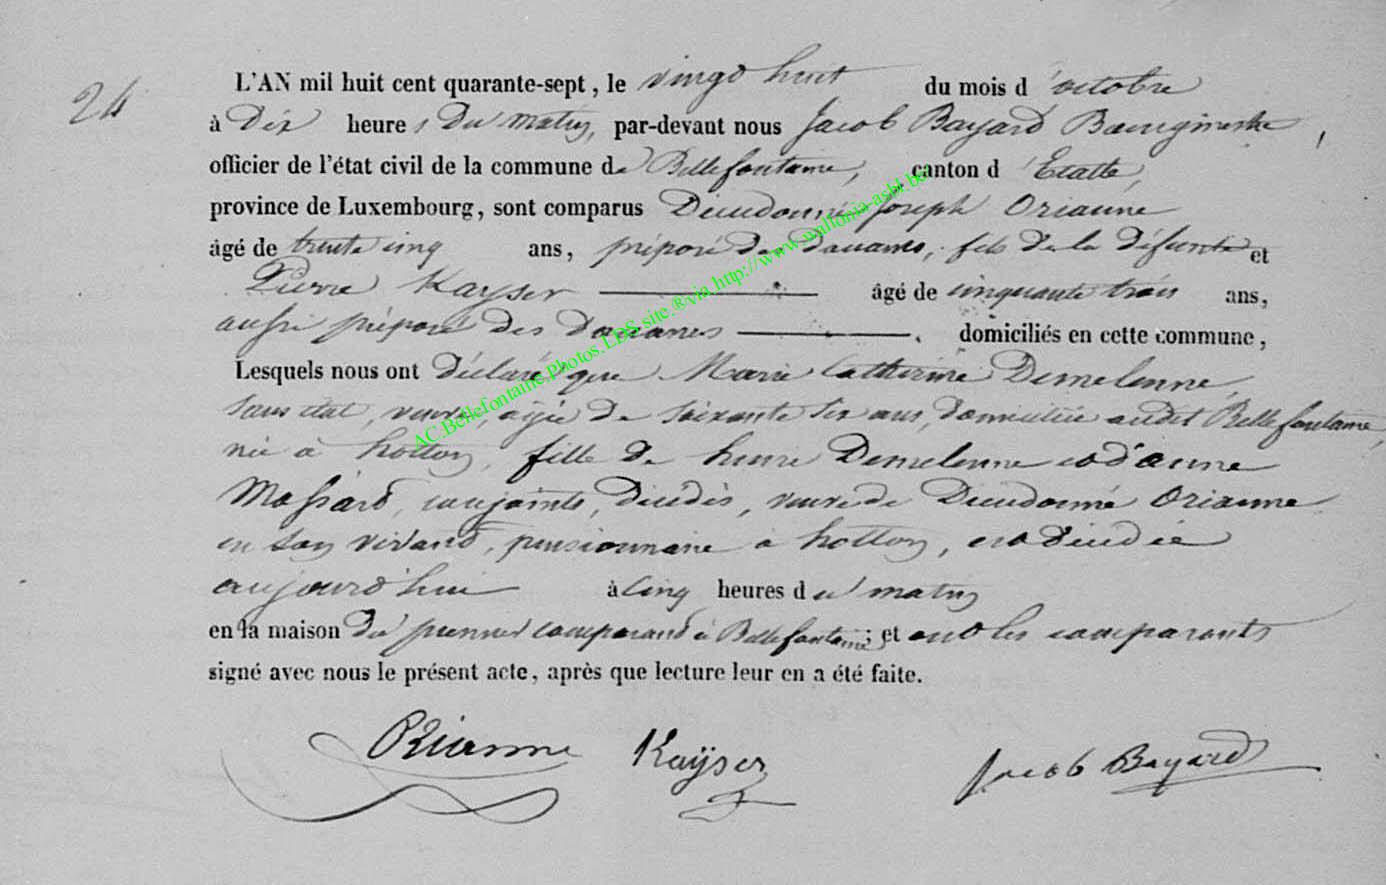 24
L'AN mil huit cent quarante-sept, le vingt huit du mois d'octobre
à Dix heures du matin, par-devant nous Jacob Bayard Bourgmestre,
officier de l'état civil de la commune de Bellefontaine, canton d'Etalle,
province de Luxembourg, sont comparus Dieudonné Joseph Orianne
âgé de trente cinq ans, préposé des douanes, fils de la défunte et
Pierre Kayser âgé de cinquante trois ans,
aussi préposé des Douanes domiciliés en cette commune,
Lesquels nous ont déclaré que Marie Catherine Demelenne
sans état, veuve, agée de soixante six ans, domiciliée audit Bellefontaine,
née à hotton, fille de henri Demelenne et d'anne
Massard, conjoints, Décédés, veuve de Dieudonné Orianne
en son vivant, pensionnaire à hotton, est décédée
aujourd'hui à cinq heures du matin
en la maison du premier comparant à Bellefontaine; et ont les comparants
signé avec nous le présent acte, après que lecture leur en a été faite.
Orianne Kaÿser Jacob Bayard
AC.Bellefontaine.Photos.LDS.site.®via http://www.wallonia-asbl.be